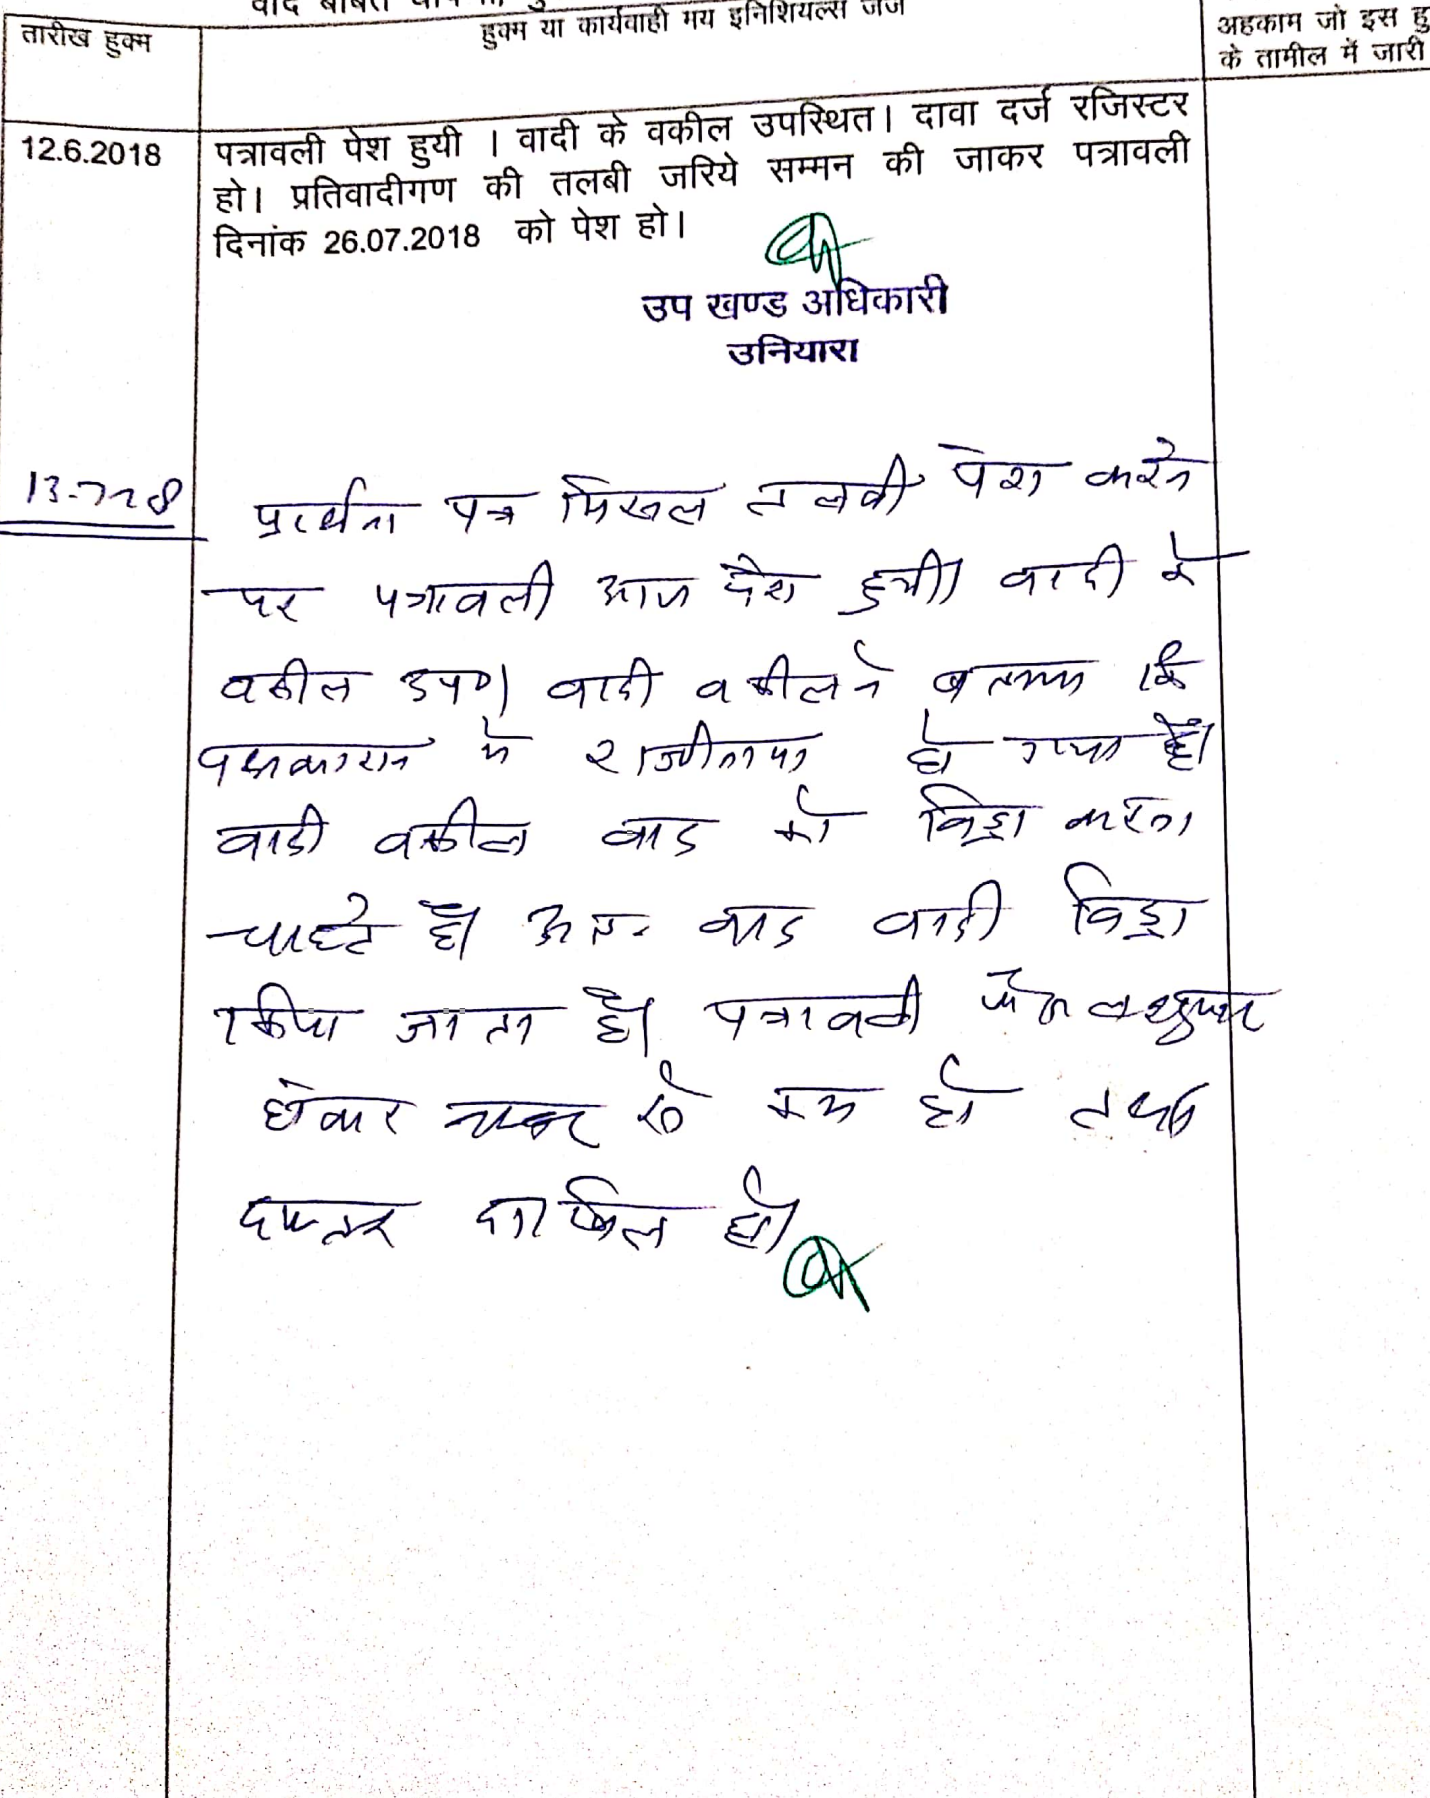 तारीख हुक्म
हुक्म या कार्यवाही मय इनिशियल्स जज
अहकाम जो इस हु
के तामील में जारी
12.6.2018
पत्रावली पेश हुयी । वादी के वकील उपस्थित। दावा दर्ज रजिस्टर
हो। प्रतिवादीगण की तलबी जरिये सम्मन की जाकर पत्रावली
दिनांक 26.07.2018 को पेश हो।
उप खण्ड अधिकारी
उनियारा
प्रार्थना पत्र मिसल तलबी पेश करने
पर पत्रावली आज पेश हुयी। वादी के
वकील उप०। वादी वकील ने बताया कि
पक्षकारान मे राजीनामा हो गया है।
वादी वकील वाद को विड्रा करना
चाहते है। अतः वाद वादी विड्रा
किया जाता है। पत्रावली फैसल शुमार
होकर नम्बर से कम हो तथा
दफ्तर दाखिल हो।